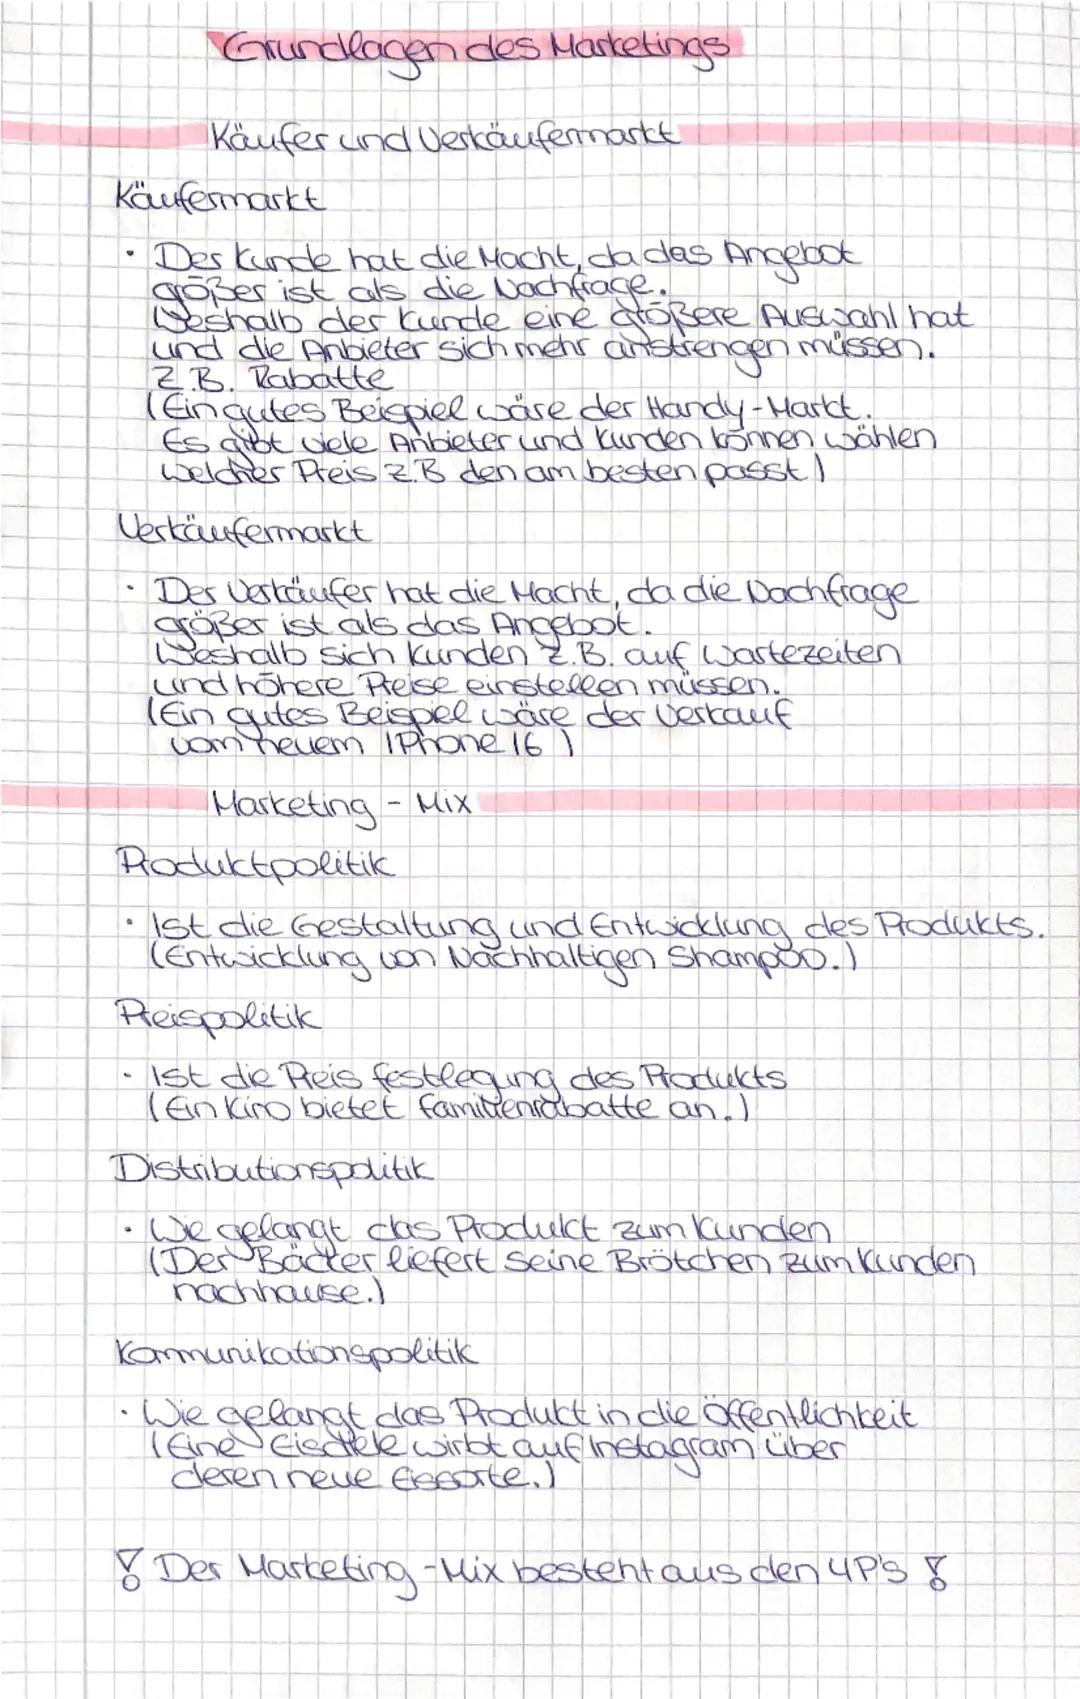 Grundlagen des Marketings
Käufer und Verkäufermarkt
Käufermarkt
• Der Kunde hat die Macht, da das Angebot
größer ist als die Nachfrage.
Weshalb der Kunde eine größere Auswahl hat
und die Anbieter sich mehr anstrengen müssen.
Z.B. Rabatte
(Ein gutes Beispiel wäre der Handy-Markt.
Es gibt viele Anbieter und Kunden können wählen
welcher Preis z.B den am besten passt.)
Verkäufermarkt
• Der Verkäufer hat die Macht, da die Nachfrage
größer ist als das Angebot.
Weshalb sich Kunden z.B. auf Wartezeiten
und höhere Preise einstellen müssen.
(Ein gutes Beispiel wäre der Verkauf
vom neuem IPhone 16)
Marketing - Mix
Produktpolitik
• Ist die Gestaltung und Entwicklung des Produkts.
(Entwicklung von Nachhaltigen Shampoo.)
Preispolitik
• Ist die Preis festlegung des Produkts
(Ein Kino bietet familienrabatte an.)
Distributionspolitik
• Wie gelangt das Produkt zum Kunden
(Der Bäcker liefert seine Brötchen zum Kunden
nachhause.)
Kommunikationspolitik
• Wie gelangt das Produkt in die Öffentlichkeit
(Eine Eisdiele wirbt auf Instagram über
deren neue Eissorte.)
! Der Marketing-Mix besteht aus den 4P's !